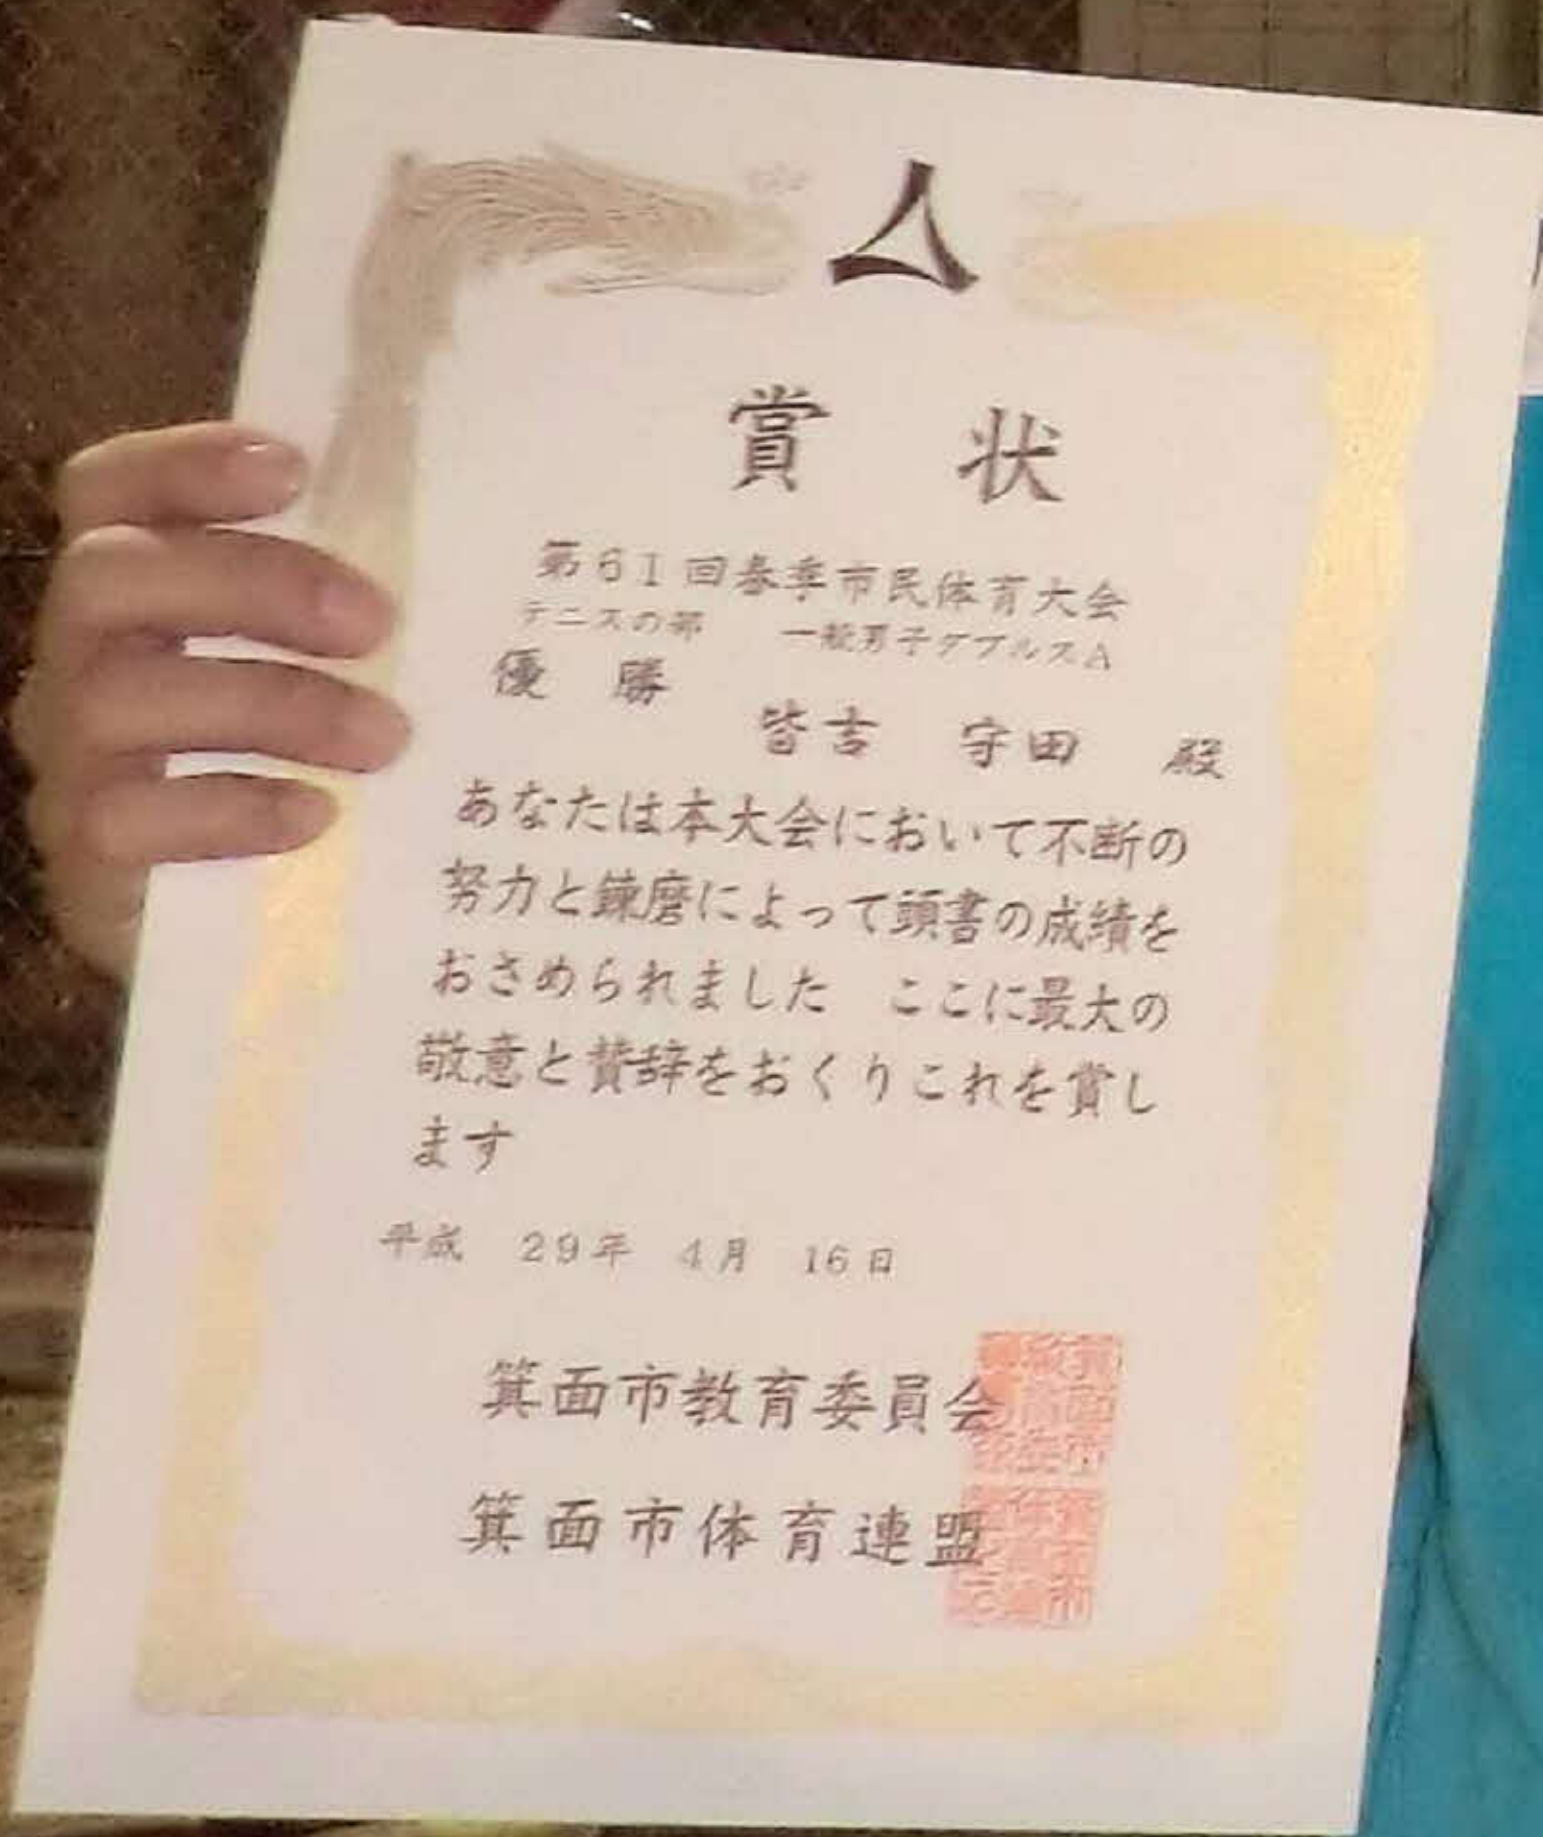 賞状
第61回春季市民体育大会
テニスの部 一般男子ダブルスA
優勝
皆吉 守田 殿
あなたは本大会において不断の
努力と錬磨によって頭書の成績を
おさめられました ここに最大の
敬意と賛辞をおくりこれを賞し
ます
平成 29年 4月 16日
箕面市教育委員会
箕面市体育連盟